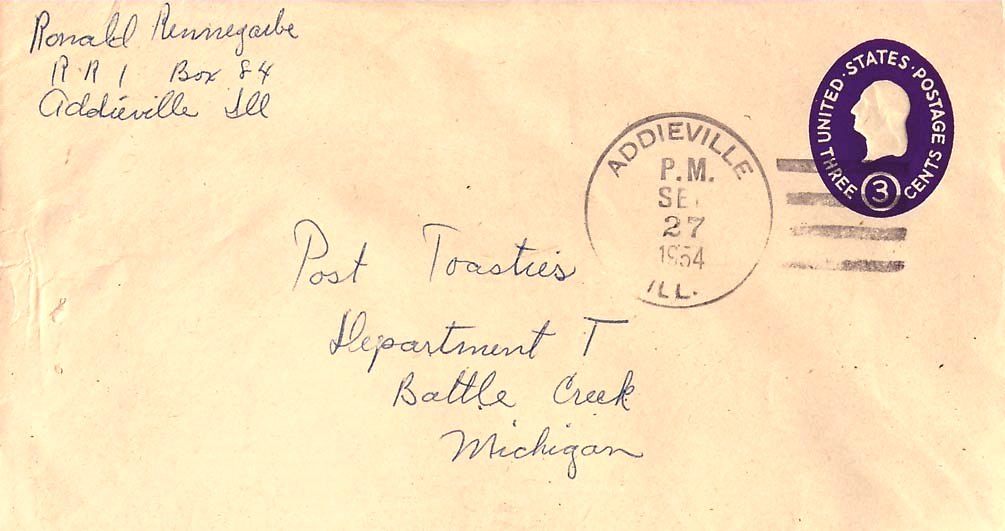 Ronald Rennegarbe
R R 1 Box 84
Addieville Ill
UNITED STATES · POSTAGE
THREE 3 CENTS
ADDIEVILLE
P.M.
SE
27
1954
ILL.
Post Toasties
Department T
Battle Creek
Michigan